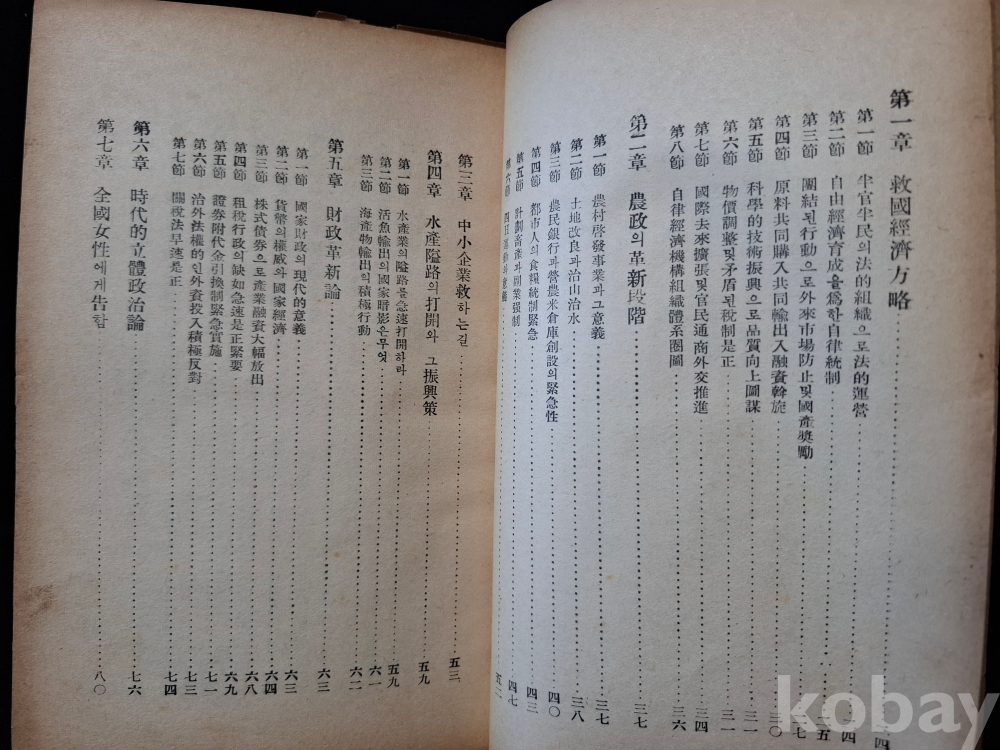 第一章 救國經濟方略
第一節 半官半民의法的組織으로法的運營
第二節 自由經濟育成을爲한自律統制 四
第三節 團結된行動으로外來市場防止및國產奬勵
第四節 原料共同購入共同輸出入融資斡旋
第五節 科學的技術振興으로品質向上圖謀
第六節 物價調整및矛盾된稅制是正 三一
第七節 國際去來擴張및官民通商外交推進 三四
第八節 自律經濟機構組織體系圈圖 三六
第二章 農政의革新段階 三七
第一節 農村啓發事業과그意義 三七
第二節 土地改良과治山治水 三八
第三節 農民銀行과營農米倉庫創設의緊急性 四〇
第四節 都市人의食糧統制緊急 四三
第五節 計劃畜產과副業强制 四七
第六節
第三章 中小企業救하는길 五三
第四章 水產隘路의打開와 그振興策 五九
第一節 水產業의隘路를急速打開하라 五九
第二節 活魚輸出의國家暗影은무엇 六一
第三節 海產物輸出의積極行動 六二
第五章 財政革新論 六三
第一節 國家財政의現代的意義 六三
第二節 貨幣의權威와國家經濟 六四
第三節 株式債券으로產業融資大幅放出 六八
第四節 租稅行政의缺如急速是正緊要 六九
第五節 證券附代金引換制緊急實施 七一
第六節 治外法權的인外資投入積極反對 七三
第七節 關稅法早速是正 七四
第六章 時代的立體政治論 七六
第七章 全國女性에게告함 八〇
kobay